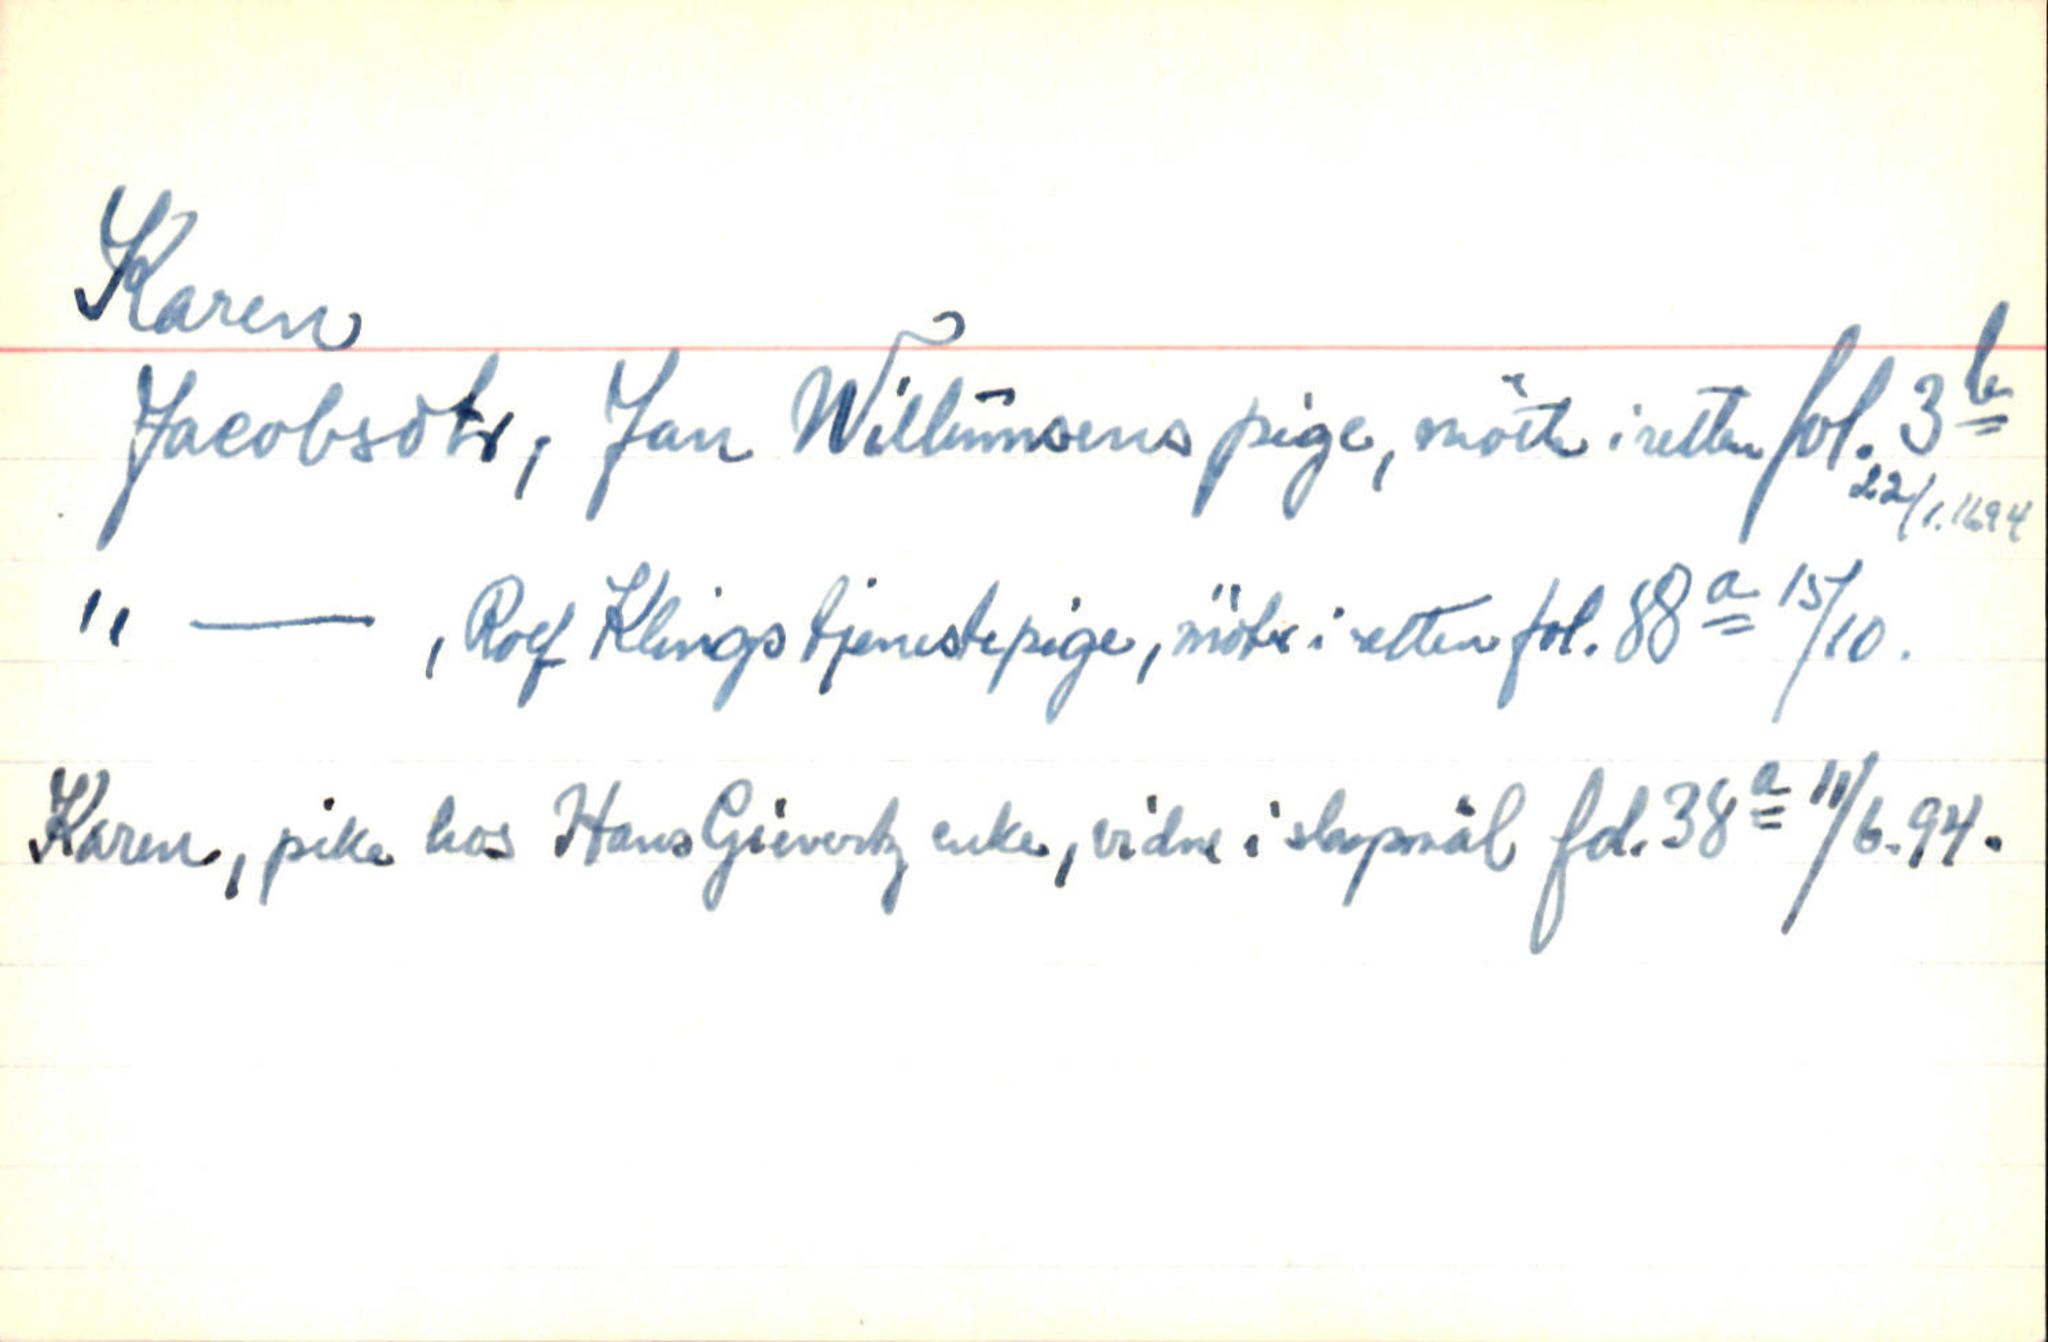 Karen
Jacobsdtr, Jan Willumsens pige, mötte i retten fol. 3 b
22/1.1694
" —— , Rolf Klings tjenestepige, möte i retten fol. 88 a 15/10.
Karen, pike hos Hans Gievertz enke, vidne i slagsmål fol. 38 a 11/6.94.